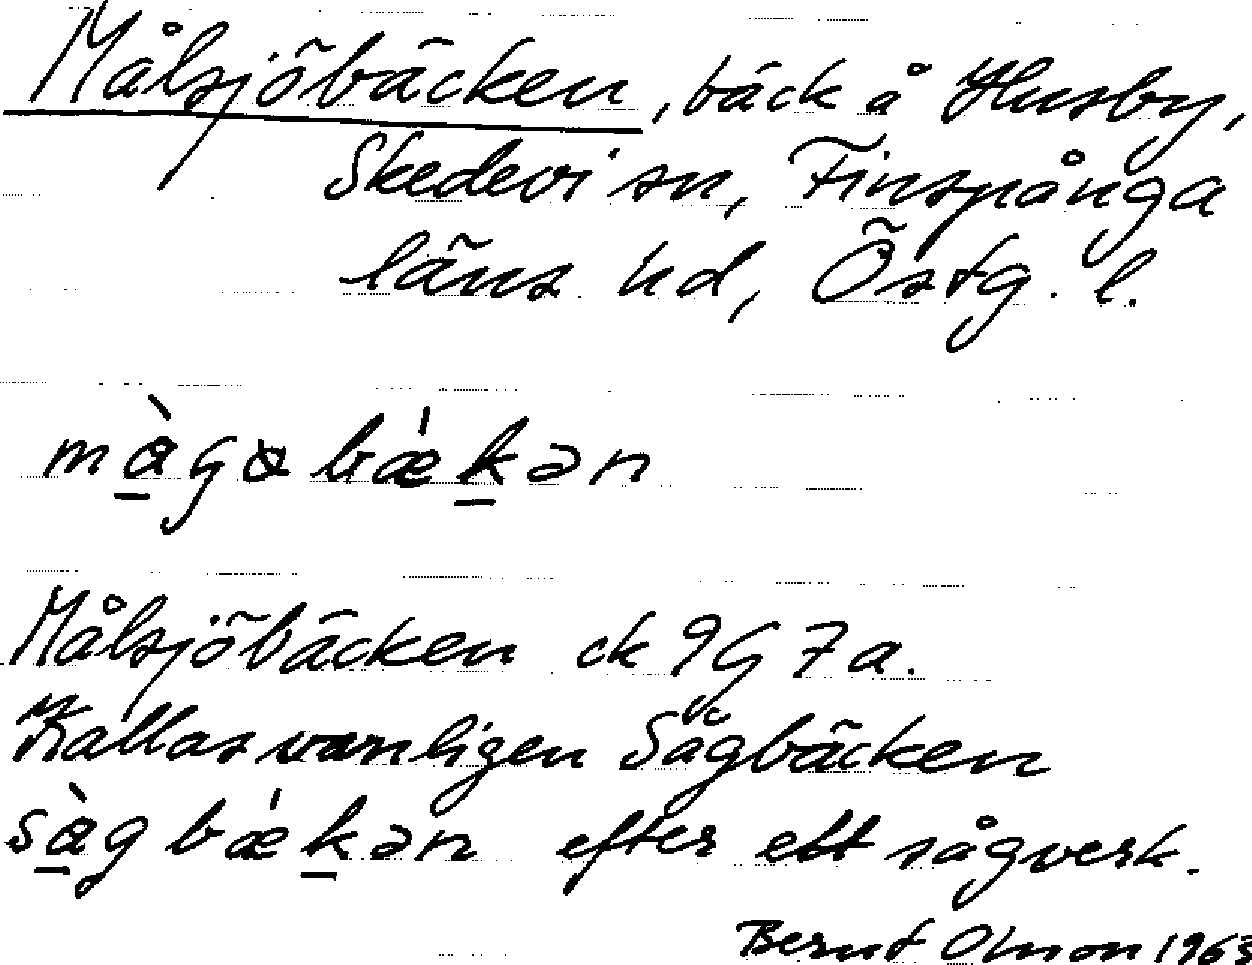 Målsjöbäcken, bäck å Husby,
Skedevi sn, Finspånga
läns hd, Östg. l.
bæ̀kən
Målsjöbäcken ek 9G 7a.
Kallas vanligen Sågbäcken
sàg bæ̀kən efter ett sågverk.
Bernt Olsson 1963